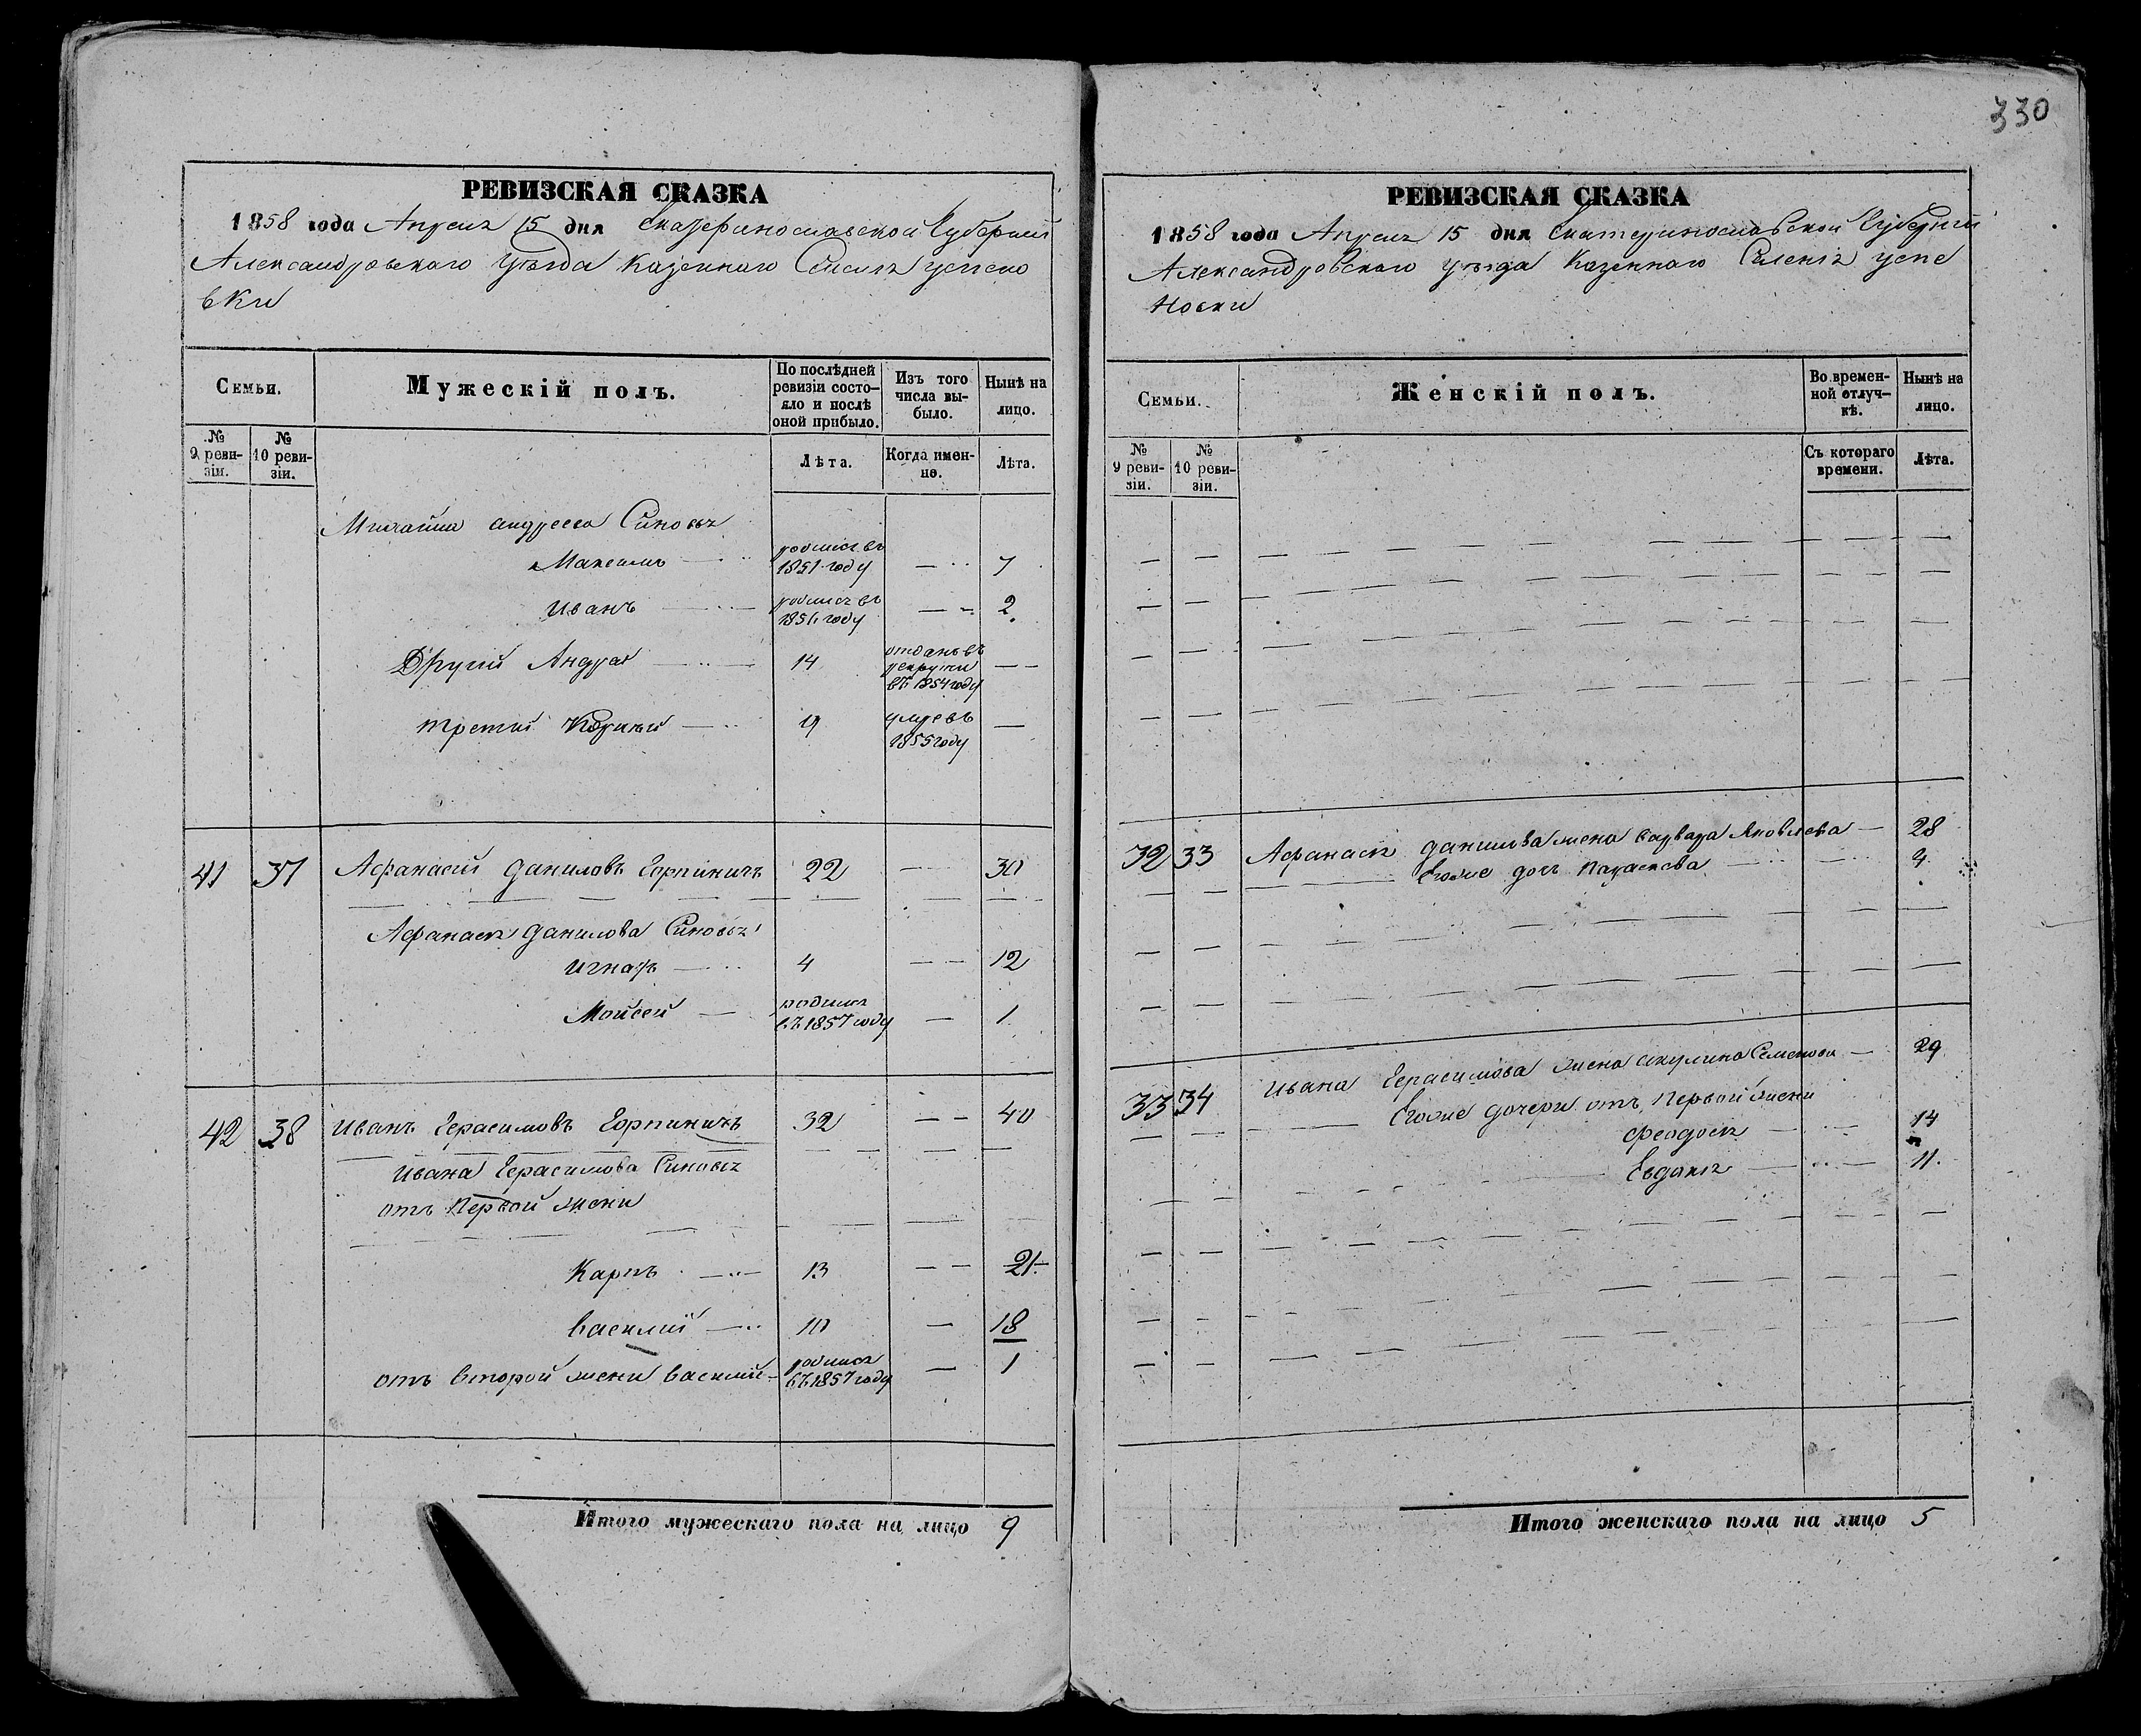 330
РЕВИЗСКАЯ СКАЗКА
1858 года Апреля 15 дня Екатеринославской Губернии
Александровскаго Уѣзда Казеннаго Селенія Успено
вки
Семьи.
Мужескій полъ.
По послѣдней ревизіи состо-
яло и послѣ оной прибыло.
Изъ того числа вы-
было.
Нынѣ на лицо.
№ 9 реви-
зіи.
№ 10 реви-
зіи.
Лѣта.
Когда имен-
но.
Лѣта.
Михайла Андреева Сыновья
Максимъ родился въ 1851 году 7
Иванъ родился въ 1856 году 2
Другий Андрей 14 отданъ въ рекруты въ 1854 году
третий Корнѣй 9 умре въ 1855 году
41 37 Афанасий Даниловъ Горпиничъ 22 30
Афанасія Данилова Сыновья
Игнатъ 4 12
Мойсей родился въ 1857 году 1
42 38 Иванъ Герасимовъ Горпиничъ 32 40
Ивана Герасимова Сыновья
отъ Первой жены
Карпъ 13 21
Василий 10 18
отъ второй жены Василий родился въ 1857 году 1
Итого мужескаго пола на лицо 9
РЕВИЗСКАЯ СКАЗКА
1858 года Апреля 15 дня Екатеринославской Губернии
Александровскаго Уѣзда Казеннаго Селенія Успе
новки
Семьи.
Женскій полъ.
Во времен-
ной отлуч-
кѣ.
Нынѣ на лицо.
№ 9 реви-
зіи.
№ 10 реви-
зіи.
Съ котораго времени.
Лѣта.
32 33 Афанасія Данилова жена Варвара Яковлева 28
Егоже дочь Параскева 4
33 34 Ивана Герасимова жена Акулина Семенова 29
Егоже дочери отъ Первой жены
Феодосія 14
Евдокія 11
Итого женскаго пола на лицо 5